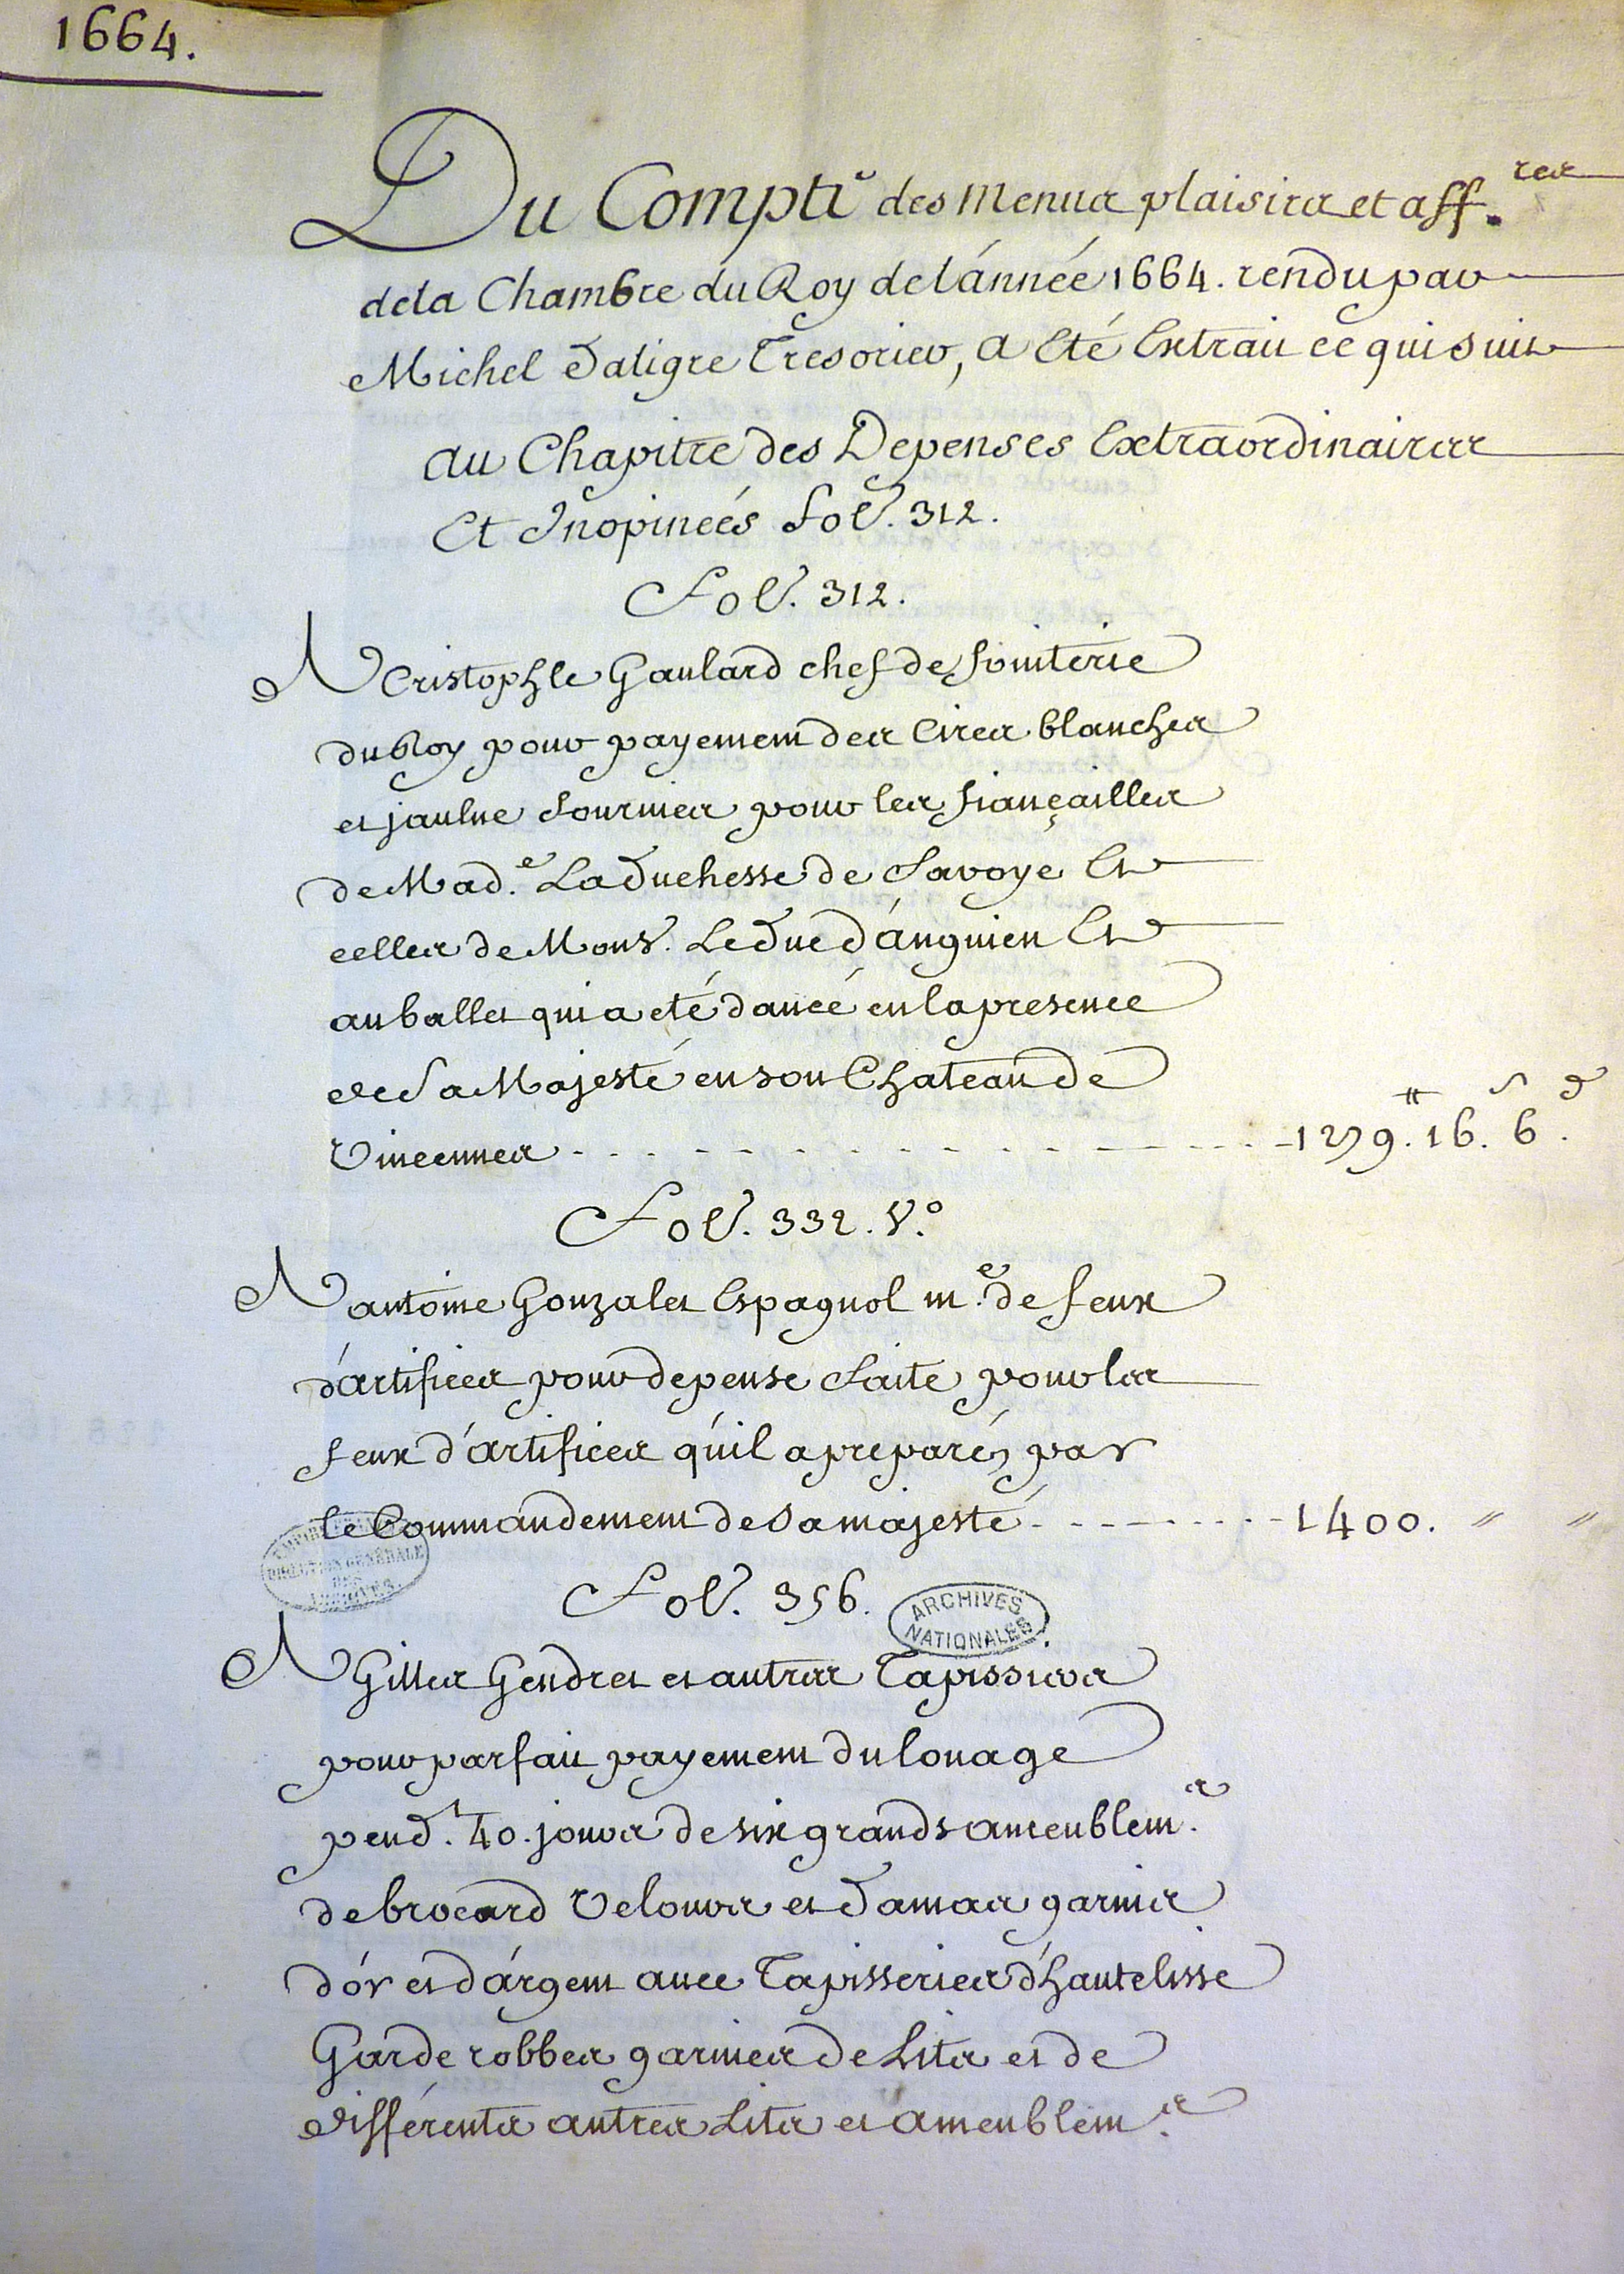 1664.
Du Compte des Menus plaisirs et aff.res
dela Chambre du Roy del'année 1664. rendu par
Michel Daligre Tresorier, a Eté Extrait ce qui suit
au Chapitre des Depenses Extraordinaires
Et Inopineés fol. 312.
Fol. 312.
A Cristophle Gaulard chef de fruiterie
du Roy pour payement des Cires blanches
et jaulne fournies pour les fiançailles
de Mad.e La Duchesse de Savoye Et
celles de Mons.r Le Duc d'anguien Et
au ballet qui a eté dancé en la presence
de Sa Majesté en son Chateau de
Vincennes - - - - - 1279.# 16.s 6.d
Fol. 332. V.o
A antoine Gonzalet Espagnol m.e de feux
d'artifices pour depense faite pour les
feux d'artifices qu'il a preparés par
le Commandement de Sa majesté - - - - - 1400. " "
EMPIRE FRANÇAIS
DIRECTION GÉNÉRALE
DES
ARCHIVES.
Fol. 356.
ARCHIVES
NATIONALES
A Gilles Gendret et autres Tapissiers
pour parfait payement du louage
pend.t 40. jours de six grands ameublem.s
de brocard Velours et Damas garnis
d'or et d'argent avec Tapisseries d'hautelisse
Garde robbes garnies de Lits et de
différents autres Lits et ameublem.s